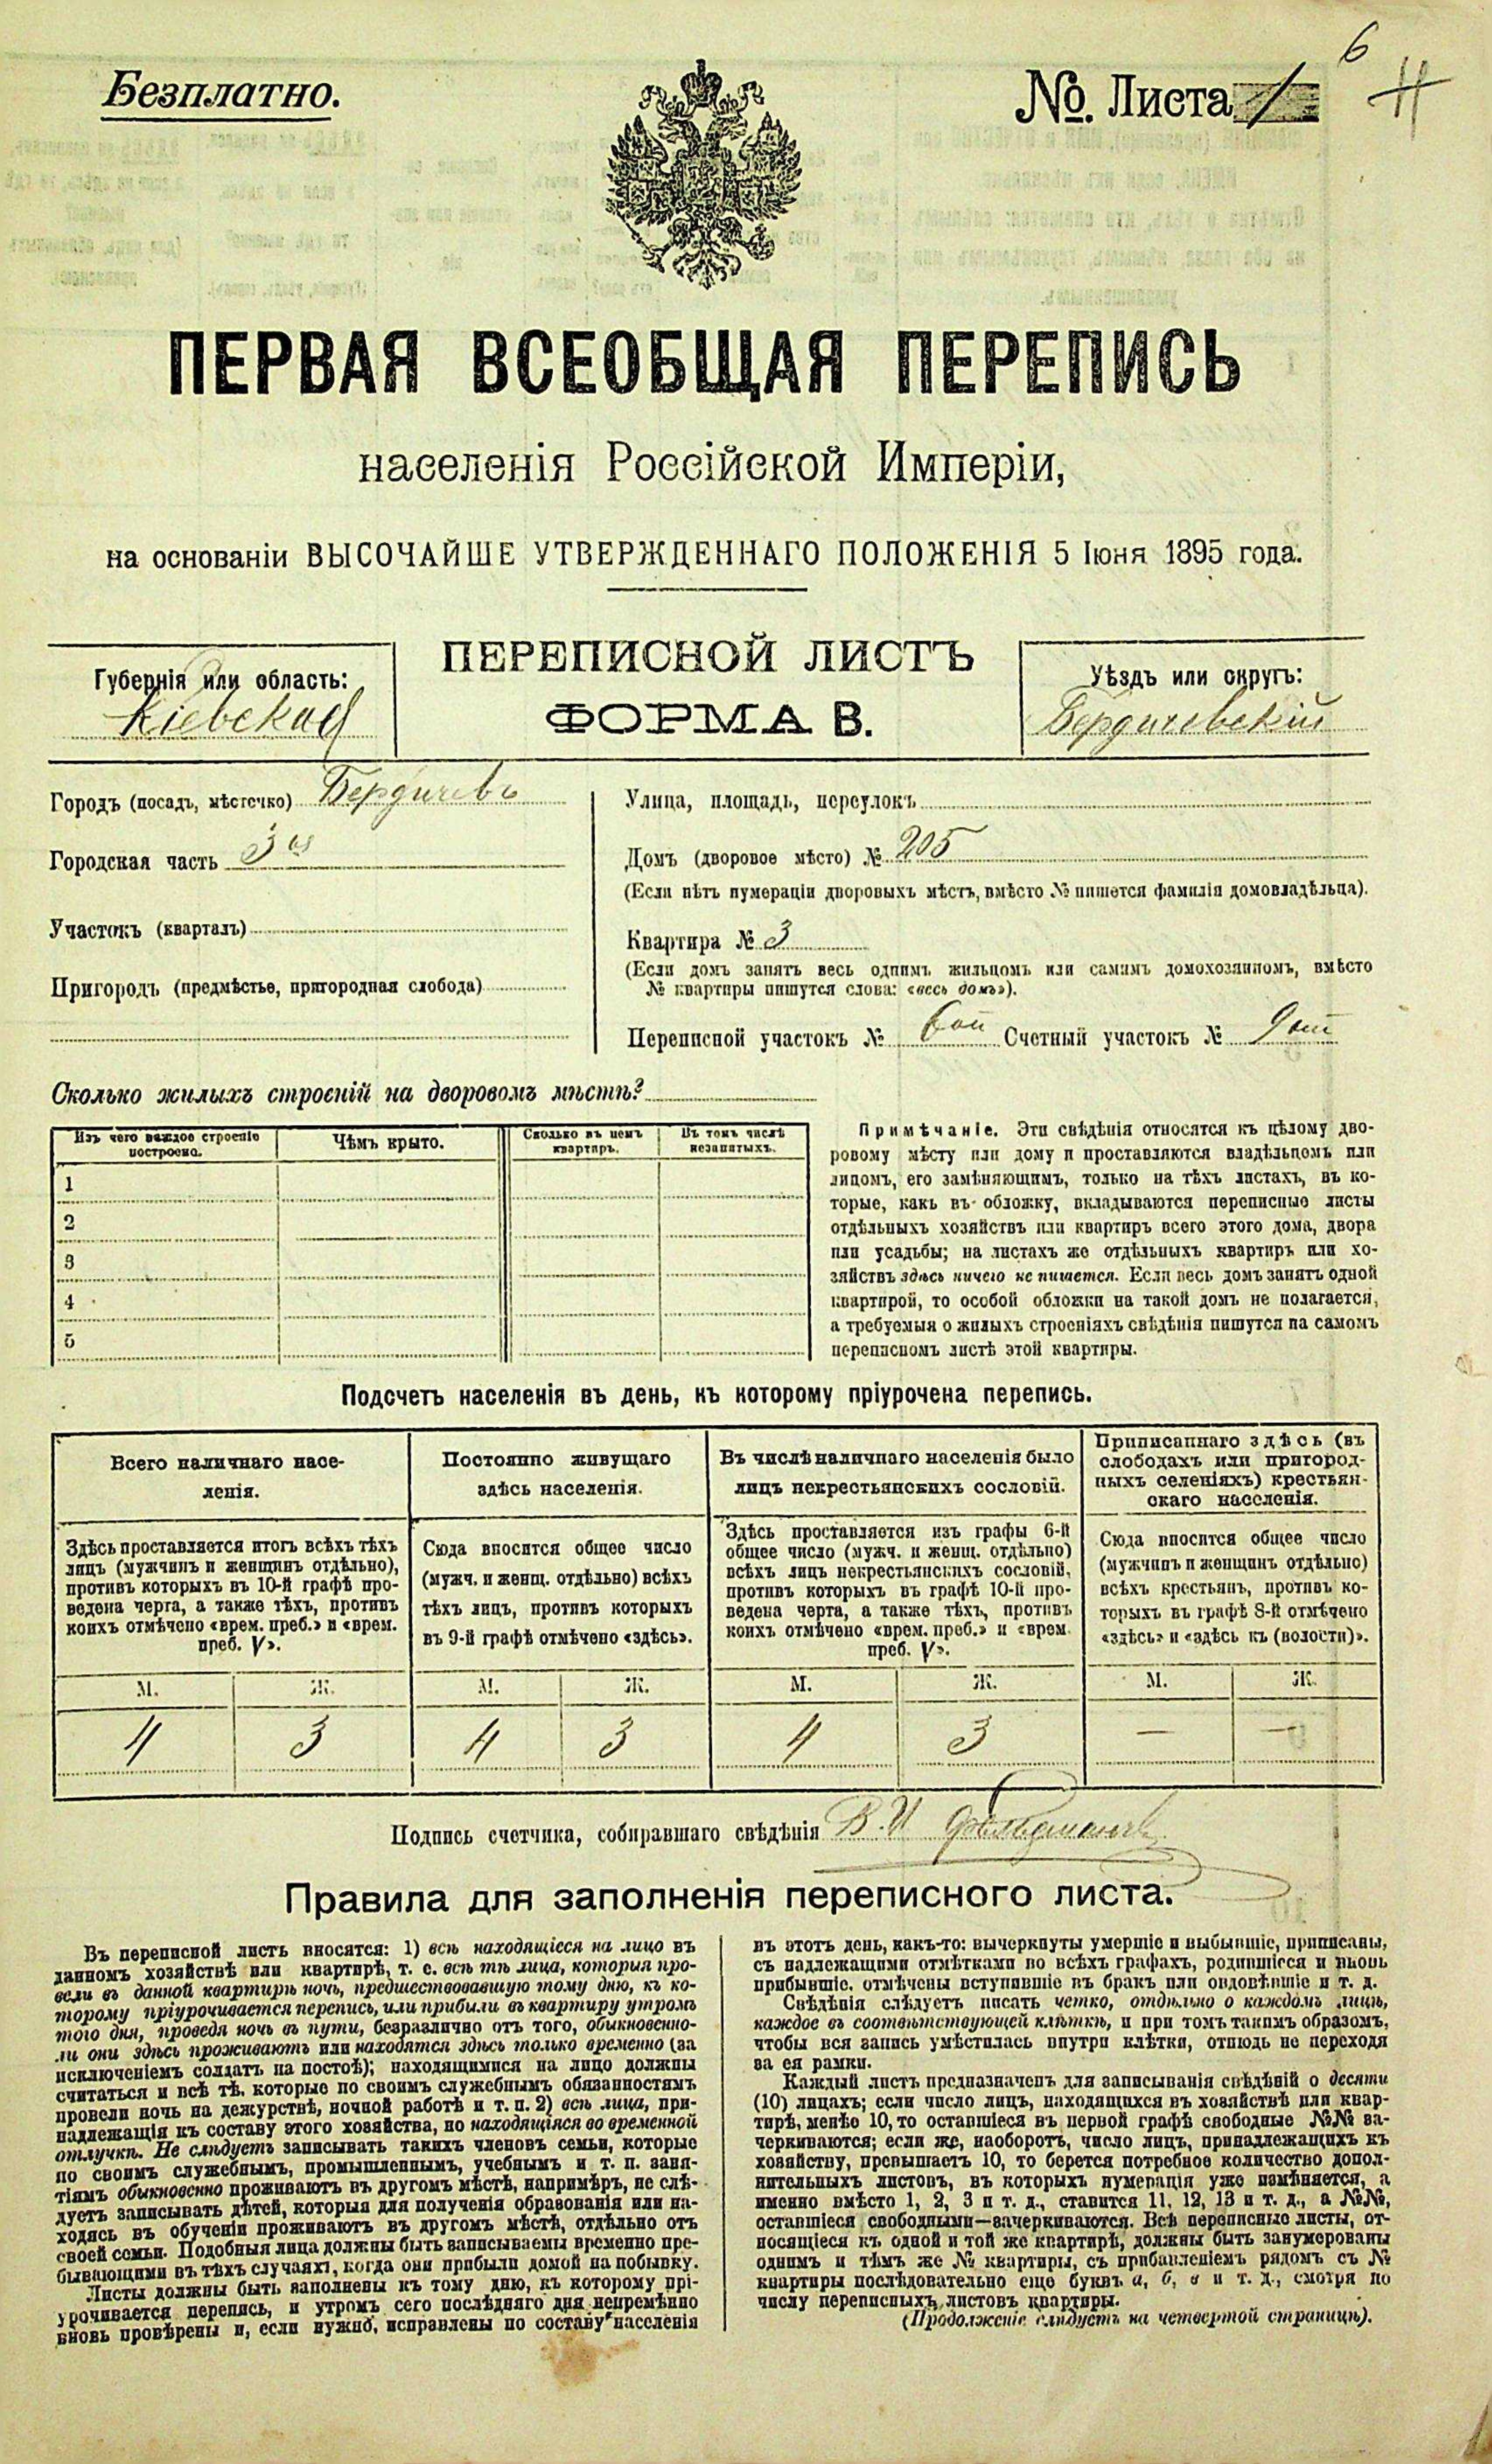 6
Безплатно.
№. Листа 1
ПЕРВАЯ ВСЕОБЩАЯ ПЕРЕПИСЬ
населенія Россійской Имперіи,
на основаніи ВЫСОЧАЙШЕ УТВЕРЖДЕННАГО ПОЛОЖЕНІЯ 5 Іюня 1895 года.
ПЕРЕПИСНОЙ ЛИСТЪ
ФОРМА В.
Губернія или область:
Кіевская
Уѣздъ или округъ:
Бердичевскій
Городъ (посадъ, мѣстечко) Бердичевъ
Городская часть 3ая
Участокъ (кварталъ)
Пригородъ (предмѣстье, пригородная слобода)
Улица, площадь, переулокъ
Домъ (дворовое мѣсто) № 205
(Если нѣтъ нумераціи дворовыхъ мѣстъ, вмѣсто № пишется фамилія домовладѣльца).
Квартира № 3
(Если домъ занятъ весь однимъ жильцомъ или самимъ домохозяиномъ, вмѣсто
№ квартиры пишутся слова: «весь домъ»).
Переписной участокъ № 6ой Счетный участокъ № 9ый
Сколько жилыхъ строеній на дворовомъ мѣстѣ?
Изъ чего каждое строеніе
построено.
Чѣмъ крыто.
Сколько въ немъ
квартиръ.
Въ томъ числѣ
незанятыхъ.
1
2
3
4
5
Примѣчаніе. Эти свѣдѣнія относятся къ цѣлому дво-
ровому мѣсту или дому и проставляются владѣльцомъ или
лицомъ, его замѣняющимъ, только на тѣхъ листахъ, въ ко-
торые, какъ въ обложку, вкладываются переписные листы
отдѣльныхъ хозяйствъ или квартиръ всего этого дома, двора
или усадьбы; на листахъ же отдѣльныхъ квартиръ или хо-
зяйствъ здѣсь ничего не пишется. Если весь домъ занятъ одной
квартирой, то особой обложки на такой домъ не полагается,
а требуемыя о жилыхъ строеніяхъ свѣдѣнія пишутся на самомъ
переписномъ листѣ этой квартиры.
Подсчетъ населенія въ день, къ которому пріурочена перепись.
Всего наличнаго насе-
ленія.
Здѣсь проставляется итогъ всѣхъ тѣхъ
лицъ (мужчинъ и женщинъ отдѣльно),
противъ которыхъ въ 10-й графѣ про-
ведена черта, а также тѣхъ, противъ
коихъ отмѣчено «врем. преб.» и «врем.
преб. V».
М. Ж.
4 3
Постоянно живущаго
здѣсь населенія.
Сюда вносится общее число
(мужч. и женщ. отдѣльно) всѣхъ
тѣхъ лицъ, противъ которыхъ
въ 9-й графѣ отмѣчено «здѣсь».
М. Ж.
4 3
Въ числѣ наличнаго населенія было
лицъ некрестьянскихъ сословій.
Здѣсь проставляется изъ графы 6-й
общее число (мужч. и женщ. отдѣльно)
всѣхъ лицъ некрестьянскихъ сословій,
противъ которыхъ въ графѣ 10-й про-
ведена черта, а также тѣхъ, противъ
коихъ отмѣчено «врем. преб.» и «врем.
преб. V».
М. Ж.
4 3
Приписаннаго здѣсь (въ
слободахъ или пригород-
ныхъ селеніяхъ) крестьян-
скаго населенія.
Сюда вносится общее число
(мужчинъ и женщинъ отдѣльно)
всѣхъ крестьянъ, противъ ко-
торыхъ въ графѣ 8-й отмѣчено
«здѣсь» и «здѣсь къ (волости)».
М. Ж.
— —
Подпись счетчика, собиравшаго свѣдѣнія В. И
Правила для заполненія переписного листа.
Въ переписной листъ вносятся: 1) всѣ находящіеся на лицо въ
данномъ хозяйствѣ или квартирѣ, т. е. всѣ тѣ лица, которыя про-
вели въ данной квартирѣ ночь, предшествовавшую тому дню, къ ко-
торому пріурочивается перепись, или прибыли въ квартиру утромъ
того дня, проведя ночь въ пути, безразлично отъ того, обыкновенно-
ли они здѣсь проживаютъ или находятся здѣсь только временно (за
исключеніемъ солдатъ на постоѣ); находящимися на лицо должны
считаться и всѣ тѣ, которые по своимъ служебнымъ обязанностямъ
провели ночь на дежурствѣ, ночной работѣ и т. п. 2) всѣ лица, при-
надлежащія къ составу этого хозяйства, но находящіяся во временной
отлучкѣ. Не слѣдуетъ записывать такихъ членовъ семьи, которые
по своимъ служебнымъ, промышленнымъ, учебнымъ и т. п. заня-
тіямъ обыкновенно проживаютъ въ другомъ мѣстѣ, напримѣръ, не слѣ-
дуетъ записывать дѣтей, которыя для полученія образованія или на-
ходясь въ обученіи проживаютъ въ другомъ мѣстѣ, отдѣльно отъ
своей семьи. Подобныя лица должны быть записываемы временно пре-
бывающими въ тѣхъ случаяхъ, когда они прибыли домой на побывку.
Листы должны быть заполнены къ тому дню, къ которому прі-
урочивается перепись, и утромъ сего послѣдняго дня непремѣнно
вновь провѣрены и, если нужно, исправлены по составу населенія
въ этотъ день, какъ-то: вычеркнуты умершіе и выбывшіе, приписаны,
съ надлежащими отмѣтками во всѣхъ графахъ, родившіеся и вновь
прибывшіе, отмѣчены вступившіе въ бракъ или овдовѣвшіе и т. д.
Свѣдѣнія слѣдуетъ писать четко, отдѣльно о каждомъ лицѣ,
каждое въ соотвѣтствующей клѣткѣ, и при томъ такимъ образомъ,
чтобы вся запись умѣстилась внутри клѣтки, отнюдь не переходя
за ея рамки.
Каждый листъ предназначенъ для записыванія свѣдѣній о десяти
(10) лицахъ; если число лицъ, находящихся въ хозяйствѣ или квар-
тирѣ, менѣе 10, то оставшіеся въ первой графѣ свободные №№ за-
черкиваются; если же, наоборотъ, число лицъ, принадлежащихъ къ
хозяйству, превышаетъ 10, то берется потребное количество допол-
нительныхъ листовъ, въ которыхъ нумерація уже измѣняется, а
именно вмѣсто 1, 2, 3 и т. д., ставится 11, 12, 13 и т. д., а №№,
оставшіеся свободными—зачеркиваются. Всѣ переписные листы, от-
носящіеся къ одной и той же квартирѣ, должны быть занумерованы
однимъ и тѣмъ же № квартиры, съ прибавленіемъ рядомъ съ №
квартиры послѣдовательно еще буквъ а, б, в и т. д., смотря по
числу переписныхъ листовъ квартиры.
(Продолженіе слѣдуетъ на четвертой страницѣ).